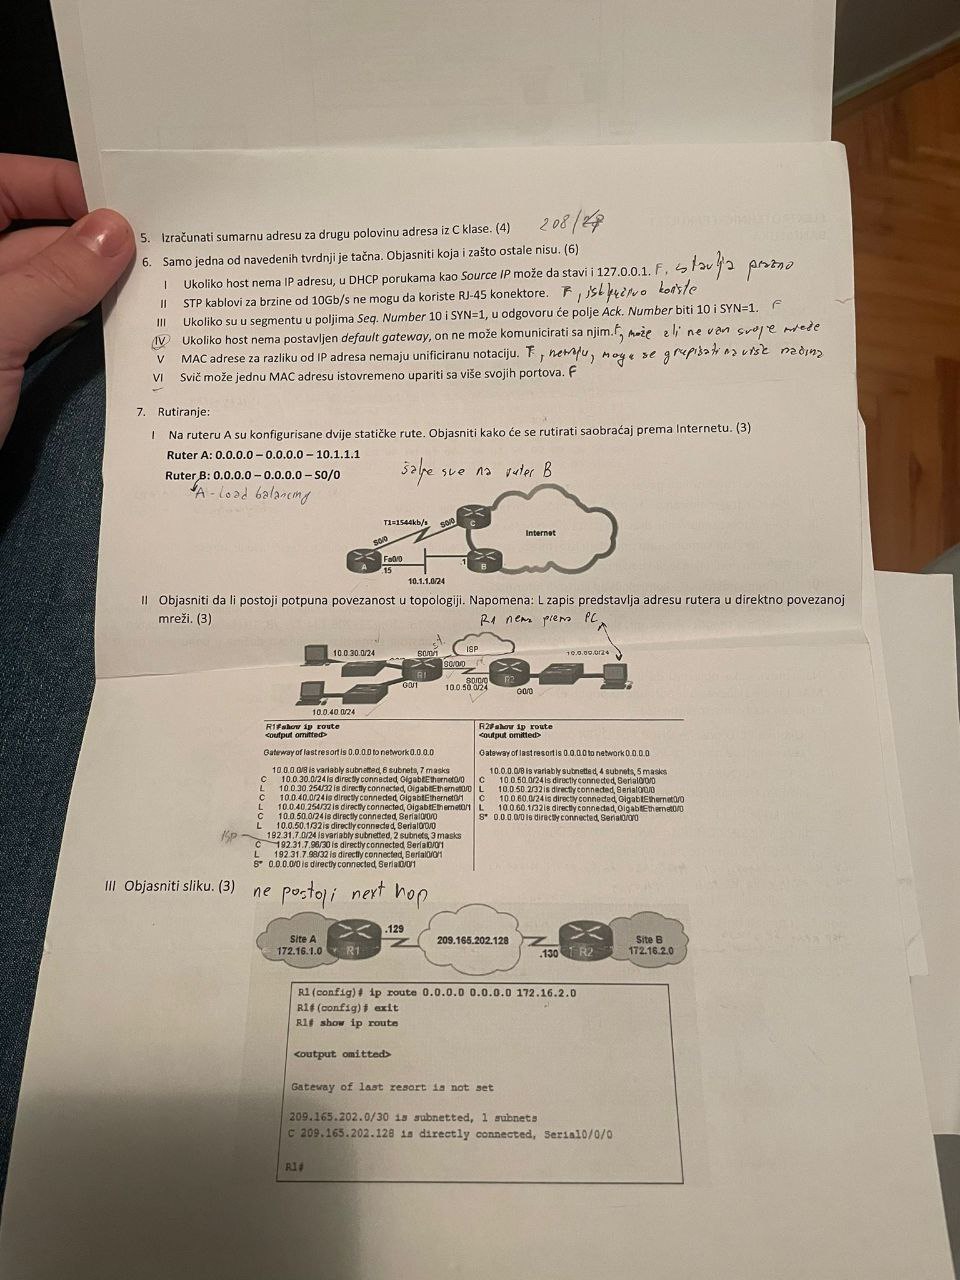 5. Izračunati sumarnu adresu za drugu polovinu adresa iz C klase. (4) 208/
6. Samo jedna od navedenih tvrdnji je tačna. Objasniti koja i zašto ostale nisu. (6)
I Ukoliko host nema IP adresu, u DHCP porukama kao Source IP može da stavi i 127.0.0.1. F, stavlja prazno
II STP kablovi za brzine od 10Gb/s ne mogu da koriste RJ-45 konektore. F, isključivo koriste
III Ukoliko su u segmentu u poljima Seq. Number 10 i SYN=1, u odgovoru će polje Ack. Number biti 10 i SYN=1. F
IV Ukoliko host nema postavljen default gateway, on ne može komunicirati sa njim. F, može ali ne van svoje mreže
V MAC adrese za razliku od IP adresa nemaju unificiranu notaciju. T, nemaju, mogu se grupisati na više načina
VI Svič može jednu MAC adresu istovremeno upariti sa više svojih portova. F
7. Rutiranje:
I Na ruteru A su konfigurisane dvije statičke rute. Objasniti kako će se rutirati saobraćaj prema Internetu. (3)
Ruter A: 0.0.0.0 – 0.0.0.0 – 10.1.1.1
Ruter B: 0.0.0.0 – 0.0.0.0 – S0/0
šalje sve na ruter B
A - load balancing
T1=1544kb/s
S0/0
C
S0/0
Internet
A
Fa0/0
.15
.1
B
10.1.1.0/24
II Objasniti da li postoji potpuna povezanost u topologiji. Napomena: L zapis predstavlja adresu rutera u direktno povezanoj
mreži. (3)
R1 nema prema PC
10.0.30.0/24
S0/0/1
ISP
10.0.60.0/24
R1
S0/0/0
G0/1
S0/0/0
10.0.50.0/24
R2
G0/0
10.0.40.0/24
R1#show ip route
<output omitted>
Gateway of last resort is 0.0.0.0 to network 0.0.0.0
10.0.0.0/8 is variably subnetted, 6 subnets, 7 masks
C 10.0.30.0/24 is directly connected, GigabitEthernet0/0
L 10.0.30.254/32 is directly connected, GigabitEthernet0/0
C 10.0.40.0/24 is directly connected, GigabitEthernet0/1
L 10.0.40.254/32 is directly connected, GigabitEthernet0/1
C 10.0.50.0/24 is directly connected, Serial0/0/0
L 10.0.50.1/32 is directly connected, Serial0/0/0
192.31.7.0/24 is variably subnetted, 2 subnets, 3 masks
ISP
C 192.31.7.96/30 is directly connected, Serial0/0/1
L 192.31.7.98/32 is directly connected, Serial0/0/1
S* 0.0.0.0/0 is directly connected, Serial0/0/1
R2#show ip route
<output omitted>
Gateway of last resort is 0.0.0.0 to network 0.0.0.0
10.0.0.0/8 is variably subnetted, 4 subnets, 5 masks
C 10.0.50.0/24 is directly connected, Serial0/0/0
L 10.0.50.2/32 is directly connected, Serial0/0/0
C 10.0.60.0/24 is directly connected, GigabitEthernet0/0
L 10.0.60.1/32 is directly connected, GigabitEthernet0/0
S* 0.0.0.0/0 is directly connected, Serial0/0/0
III Objasniti sliku. (3) ne postoji next hop
Site A
172.16.1.0
R1
.129
209.165.202.128
.130
R2
Site B
172.16.2.0
R1(config)# ip route 0.0.0.0 0.0.0.0 172.16.2.0
R1#(config)# exit
R1# show ip route
<output omitted>
Gateway of last resort is not set
209.165.202.0/30 is subnetted, 1 subnets
C 209.165.202.128 is directly connected, Serial0/0/0
R1#